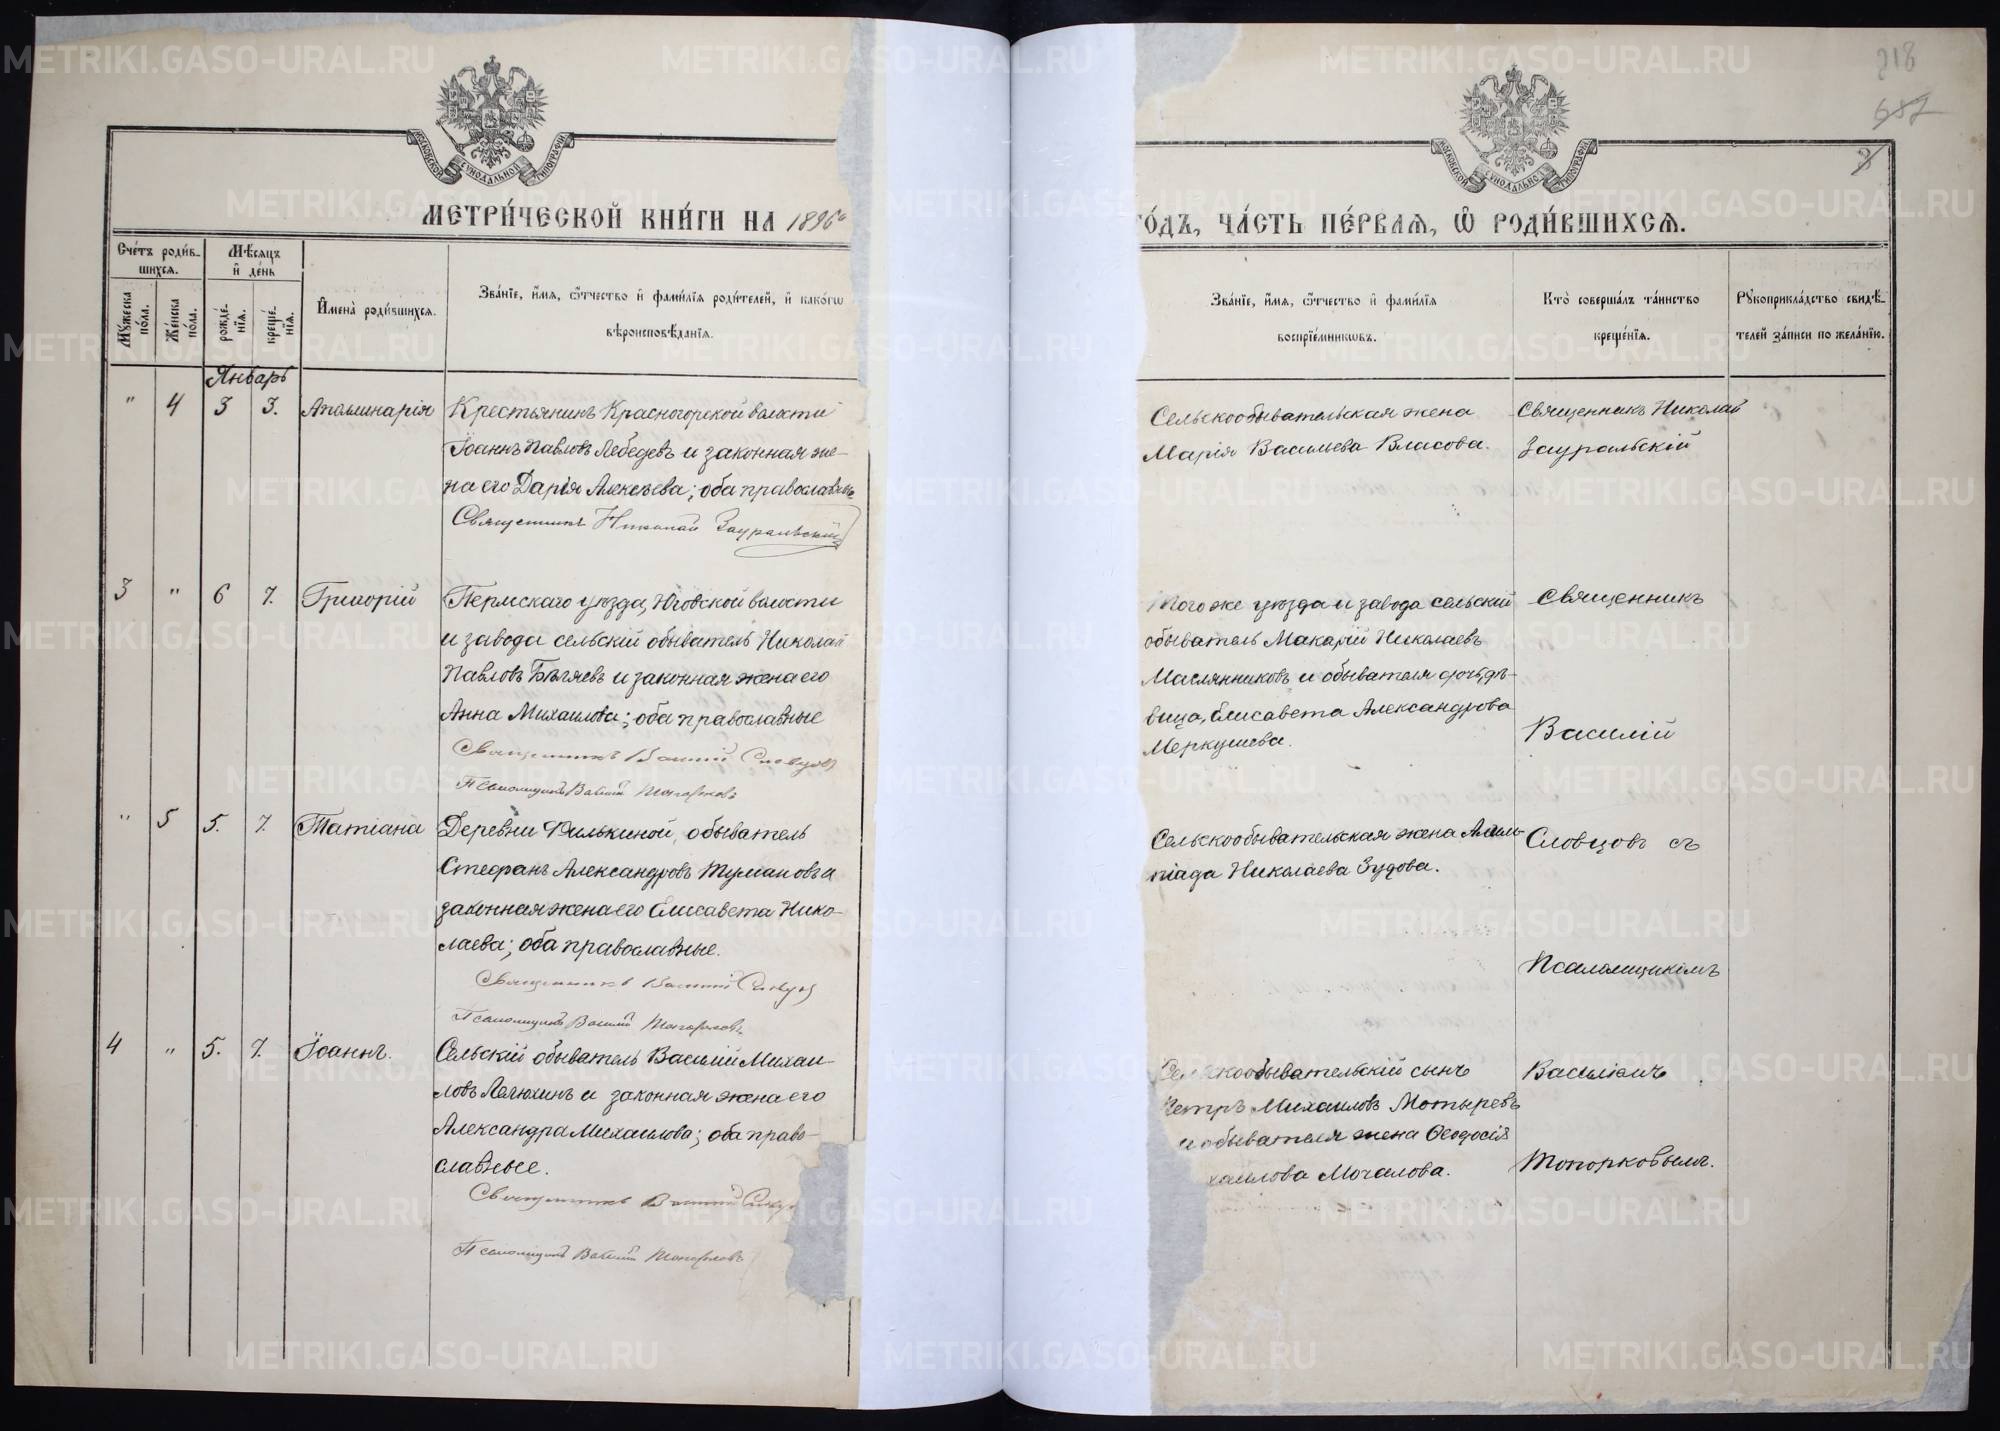 218
637
3
МОСКОВСКОЙ СѴНОДАЛЬНОЙ ТИПОГРАФІИ
МОСКОВСКОЙ СѴНОДАЛЬНОЙ ТИПОГРАФІИ
МЕТРИ́ЧЕСКОЙ КНИ́ГИ НА 1896й
ГО́ДЪ, ЧА́СТЬ ПЕ́РВАЯ, Ѡ РОДИ́ВШИХСЯ.
Сче́тъ роди́в-
шихся.
Мѣ́сяцъ
и҆ де́нь
Мꙋ́жеска
по́ла.
Же́нска
по́ла.
рожде́-
нїя.
креще́-
нїя.
И҆мена̀ роди́вшихся.
Зва́нїе, и҆́мя, ѻ҆́тчество и҆ фами́лїя роди́телей, и҆ како́гѡ
вѣроисповѣ́данїя.
Зва́нїе, и҆́мя, ѻ҆́тчество и҆ фами́лїя
воспрїе́мникѡвъ.
Кто̀ соверша́лъ та́инство
креще́нїя.
Рꙋкоприкла́дство свидѣ́-
телей за́писи по жела́нїю.
Январь
" 4 3 3. Аполинарія
Крестьянинъ Красногорской волости
Іоаннъ Павловъ Лебедевъ и законная же-
на его Дарія Алексѣева; оба православн.
Священникъ Николай Зауральскій
Сельскообывательская жена
Марія Васильева Власова.
Священникъ Николай
Зауральскій
3 " 6 7. Григорій
Пермскаго уѣзда, Юговской волости
и завода сельскій обыватель Николай
Павловъ Бѣляевъ и законная жена его
Анна Михаилова; оба православные
Священникъ Василій Словцовъ
Псаломщикъ Василій Топорковъ
Того же уѣзда и завода сельскій
обыватель Макарій Николаевъ
Маслянниковъ и обывателя дочь, дѣ-
вица, Елисавета Александрова
Меркушева.
Священникъ
Василій
" 5 5. 7. Татіана
Деревни Филькиной, обыватель
Стефанъ Александровъ Тумановъ и
законная жена его Елисавета Нико-
лаева; оба православные.
Священникъ Василій Словцовъ
Псаломщикъ Василій Топорковъ
Сельскообывательская жена Алим-
піада Николаева Зудова.
Словцовъ съ
Псаломщикомъ
4 " 5. 7. Іоаннъ.
Сельскій обыватель Василій Михаи-
ловъ Лелюхинъ и законная жена его
Александра Михаилова; оба право-
славные.
Священникъ Василій Словцо
Псаломщикъ Василій Топорковъ
Сельскообывательскій сынъ
Петръ Михаиловъ Мотыревъ
и обывателя жена Ѳеодосія
хаилова Мочалова.
Василіемъ
Топорковымъ.
METRIKI.GASO-URAL.RU